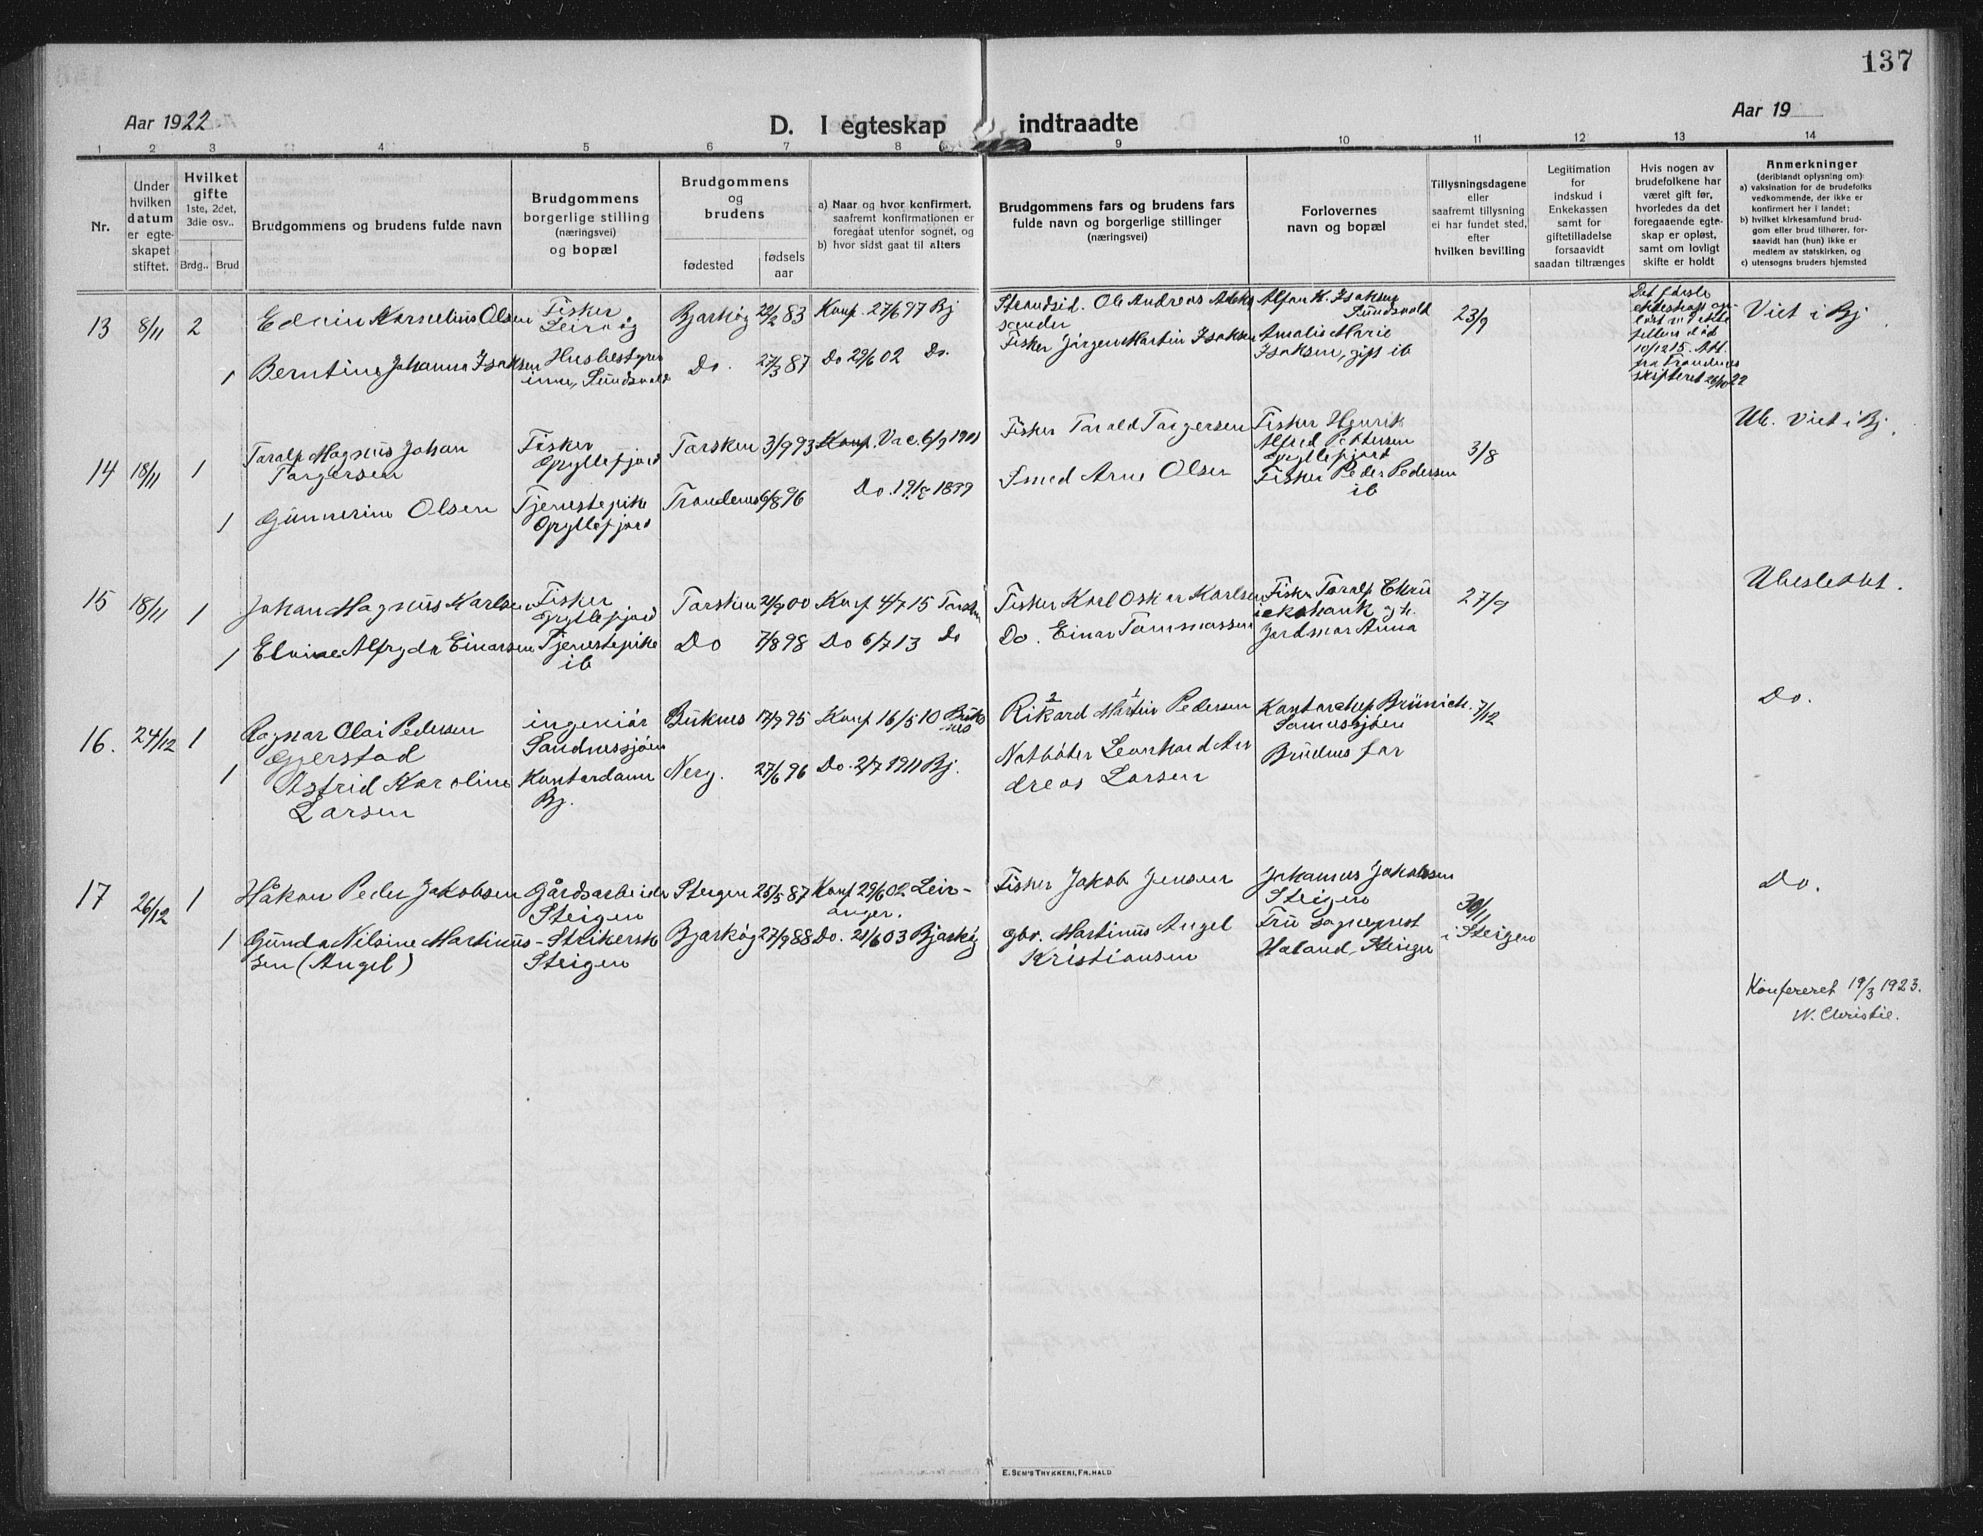 137
Aar 1922.
D. I egteskap indtraadte
Aar 19
1 2 3 4 5 6 7 8 9 10 11 12 13 14
Nr.
Under
hvilken
datum
er egte-
skapet
stiftet.
Hvilket
gifte
1ste, 2det,
3die osv..
Brdg.. Brud
Brudgommens og brudens fulde navn
Brudgommens
borgerlige stilling
(næringsvei)
og bopæl
Brudgommens
og
brudens
fødested
fødsels
aar
a) Naar og hvor konfirmert,
saafremt konfirmationen er
foregaat utenfor sognet, og
b) hvor sidst gaat til alters
Brudgommens fars og brudens fars
fulde navn og borgerlige stillinger
(næringsvei)
Forlovernes
navn og bopæl
Tillysningsdagene
eller
saafremt tillysning
ei har fundet sted,
efter
hvilken bevilling
Legitimation
for
indskud i
Enkekassen
samt for
giftetilladelse
forsaavidt
saadan tiltrænges
Hvis nogen av
brudefolkene har
været gift før,
hvorledes da det
foregaaende egte-
skap er opløst,
samt om lovligt
skifte er holdt
Anmerkninger
(deriblandt oplysning om):
a) vaksination for de brudefolks
vedkommende, der ikke er
konfirmert her i landet;
b) hvilket kirkesamfund brud-
gom eller brud tilhører, for-
saavidt han (hun) ikke er
medlem av statskirken, og
c) utensogns bruders hjemsted
13 8/11 2 Edvin Kornelius Olsen Fisker
Leirvåg Bjarkøy 22/2 83 Konf. 27/6 97 Bj
Strandsid. Ole Andreas Aleksander
Alfon K. Isaksen
Sundsvold 23/9
Det første
ekteskap op-
løst ved
død
10/12 15. Att.
fra Trondenes
skifteret 28/10 22
Viet i Bj.
1 Berntine Johanna Isaksen Husbestyrer
inne, Sundsvold Do. 27/3 87 Do 29/6 02 Do.
Fisker Jørgen Martin Isaksen Amalie Marie
Isaksen, gift ib
14 18/11 1 Taralf Magnus Johan
Torgersen Fisker
Gryllefjord Torsken 3/9 93 Konf. Vac. 6/9 1901
Fisker Tarald Torgersen Fisker Henrik
Alfred Pettersen
Gryllefjord 3/8
Ub. Viet i Bj.
1 Gunnerine Olsen Tjenestepike
Gryllefjord Trondenes 6/8 96 Do. 19/8 1899
Smed Arne Olsen Fisker Peder Pedersen
ib
15 18/11 1 Johan Magnus Karlsen Fisker
Gryllefjord Torsken 21/9 00 Konf 4/7 15 Torsken
Fisker Karl Oskar Karlsen Fisker Taralf Chri
27/9
Ubeslektet.
1 Elvine Alfryda Einarsen Tjenestepike
ib Do 7/8 98 Do 6/7 13 Do
Do. Einar Tommassen Jordmor Anna
16. 24/12 1 Ragnar Olai Pedersen
Gjerstad ingeniør
Sandnessjøen Buknes 17/9 95 Konf 16/5 10 Buk
nes
Rikard Martin Pedersen
2 1
Kontorchef Brünich.
Sannessjøen 7/12
Do.
1 Astrid Karoline
Larsen Kontordame
Bj. Nerg. 27/6 96 Do. 2/7 1911 Bj.
Notbøter Leonhard An
dreas Larsen Brudens far
17 26/12 1 Håkon Peder Jakobsen Gårdsarbeider
Steigen Steigen 25/5 87 Konf 29/6 02 Leir-
anger.
Fisker Jakob Jensen Johannes Jakobsen
Steigen 30/11
i Steigen
Do.
1 Gunda Nilsine Martinus-
sen (Angel) Strikerske
Steigen Bjarkøy 27/9 88 Do. 21/6 03 Bjarkøy
gbr. Martinus Angel
Kristiansen Fru sogneprest
Haland, Steigen
Konfereret 19/3 1923.
W. Christie.
E. SEM'S TRYKKERI, FR.HALD